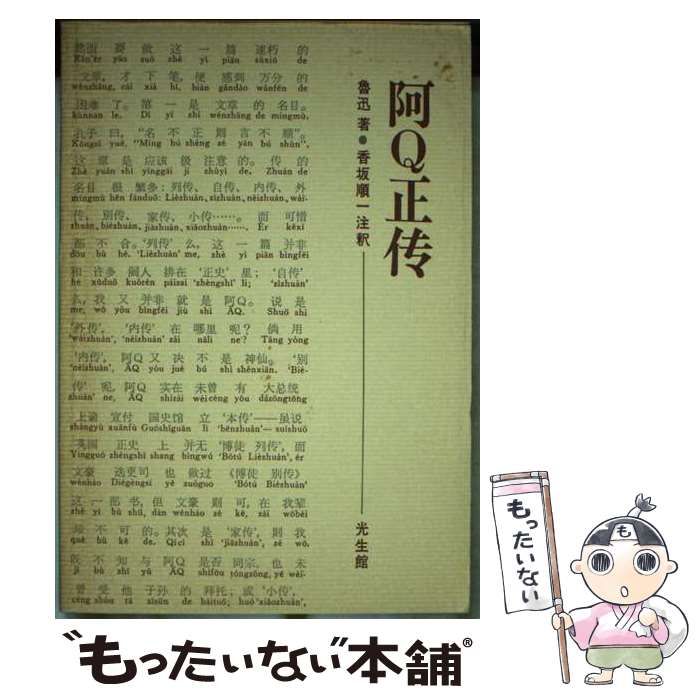 然而 要 做 这 一 篇 速朽 的
Rán'ér yào zuò zhè yì piān sùxiǔ de
文章，才 下 笔，便 感到 万分 的
wénzhāng, cái xià bǐ, biàn gǎndào wànfēn de
困难 了。第一 是 文章 的 名目。
kùnnan le. Dì yī shì wénzhāng de míngmù.
孔子 曰，“名 不 正 则 言 不 顺”。
Kǒngzǐ yuē, “Míng bú zhèng zé yán bú shùn”.
这 原 是 应该 极 注意 的。传 的
Zhè yuán shì yīnggāi jí zhùyì de. Zhuàn de
名目 很 繁多：列传，自传，内传，外
míngmù hěn fánduō: Lièzhuàn, zìzhuàn, nèizhuàn, wài-
传，别传，家传，小传……，而 可惜
zhuàn, biézhuàn, jiāzhuàn, xiǎozhuàn……, Ér kěxī
都 不 合。‘列传’ 么，这 一 篇 并非
dōu bù hé. ‘Lièzhuàn’ me, zhè yì piān bìngfēi
和 许多 阔人 排在 “正史” 里；‘自传’
hé xǔduō kuòrén páizài “zhèngshǐ” li; ‘zìzhuàn’
么，我 又 并非 就 是 阿Q。说 是
me, wǒ yòu bìngfēi jiù shì ĀQ. Shuō shì
‘外传’，‘内传’ 在 哪里 呢？倘 用
‘wàizhuàn’, ‘nèizhuàn’ zài nǎli ne? Tǎng yòng
‘内传’，阿Q 又 决 不 是 神仙。‘别
‘nèizhuàn’, ĀQ yòu jué bú shì shénxiān. ‘Bié-
传’ 呢，阿Q 实在 未曾 有 大总统
zhuàn’ ne, ĀQ shízài wèicéng yǒu dàzǒngtǒng
上谕 宣付 国史馆 立 ‘本传’——虽说
shàngyù xuānfù Guóshǐguǎn lì ‘běnzhuàn’— suīshuō
英国 正史 上 并无 ‘博徒 列传’，而
Yīngguó zhèngshǐ shang bìngwú ‘Bótú Lièzhuàn’, ér
文豪 迭更司 也 做过 《博徒 别传》
wénháo Diégèngsī yě zuòguo 《Bótú Biézhuàn》
这 一 部 书，但 文豪 则 可，在 我辈
zhè yí bù shū, dàn wénháo zé kě, zài wǒbèi
却 不 可 的。其次 是 ‘家传’，则 我
què bù kě de. Qícì shì ‘jiāzhuàn’, zé wǒ
既 不 知 与 阿Q 是否 同宗，也 未
jì bù zhī yǔ ĀQ shìfǒu tóngzōng, yě wèi-
曾 受 他 子孙 的 拜托；或 ‘小传’，
céng shòu tā zǐsūn de bàituō; huò ‘xiǎozhuàn’,
阿Q正传
魯迅 著●香坂順一 注釈
光生館
もったいない
“もったいない本舗”®